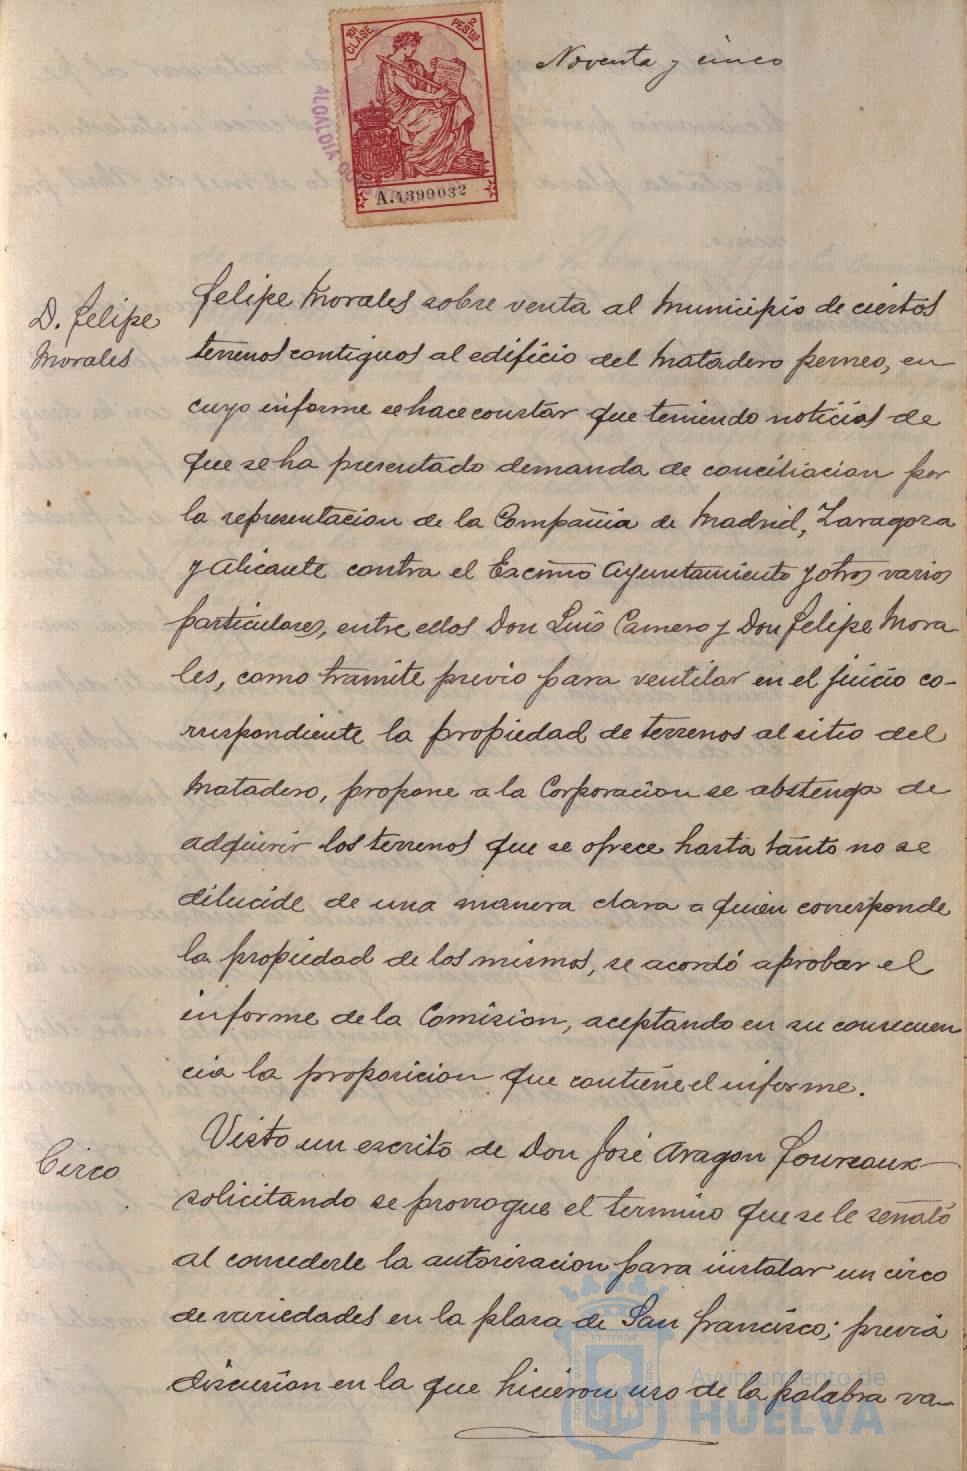 10ª CLASE 2 PESETAS
A.4399032
Noventa y cinco
D. Felipe
Morales
Felipe Morales sobre venta al Municipio de ciertos
terrenos contiguos al edificio del Matadero perneo, en
cuyo informe se hace constar que teniendo noticias de
que se ha presentado demanda de conciliacion por
la representacion de la Compañia de Madrid, Zaragoza
y Alicante contra el Excmo Ayuntamiento y otros varios
particulares, entre ellos Don Luis Camero y Don Felipe Mora
les, como tramite previo para ventilar en el juicio co-
rrespondiente la propiedad de terrenos al sitio del
Matadero, propone a la Corporacion se abstenga de
adquirir los terrenos que se ofrece hasta tanto no se
dilucide de una manera clara a quien corresponde
la propiedad de los mismos, se acordó aprobar el
informe de la Comision, aceptando en su consecuen
cia la proposicion que contiene el informe.
Circo
Visto un escrito de Don José Aragon Foureaux
solicitando se prorrogue el termino que se le señaló
al concederle la autorizacion para instalar un circo
de variedades en la plaza de San Francisco; previa
discusion en la que hicieron uso de la palabra va-
Ayuntamiento de
HUELVA